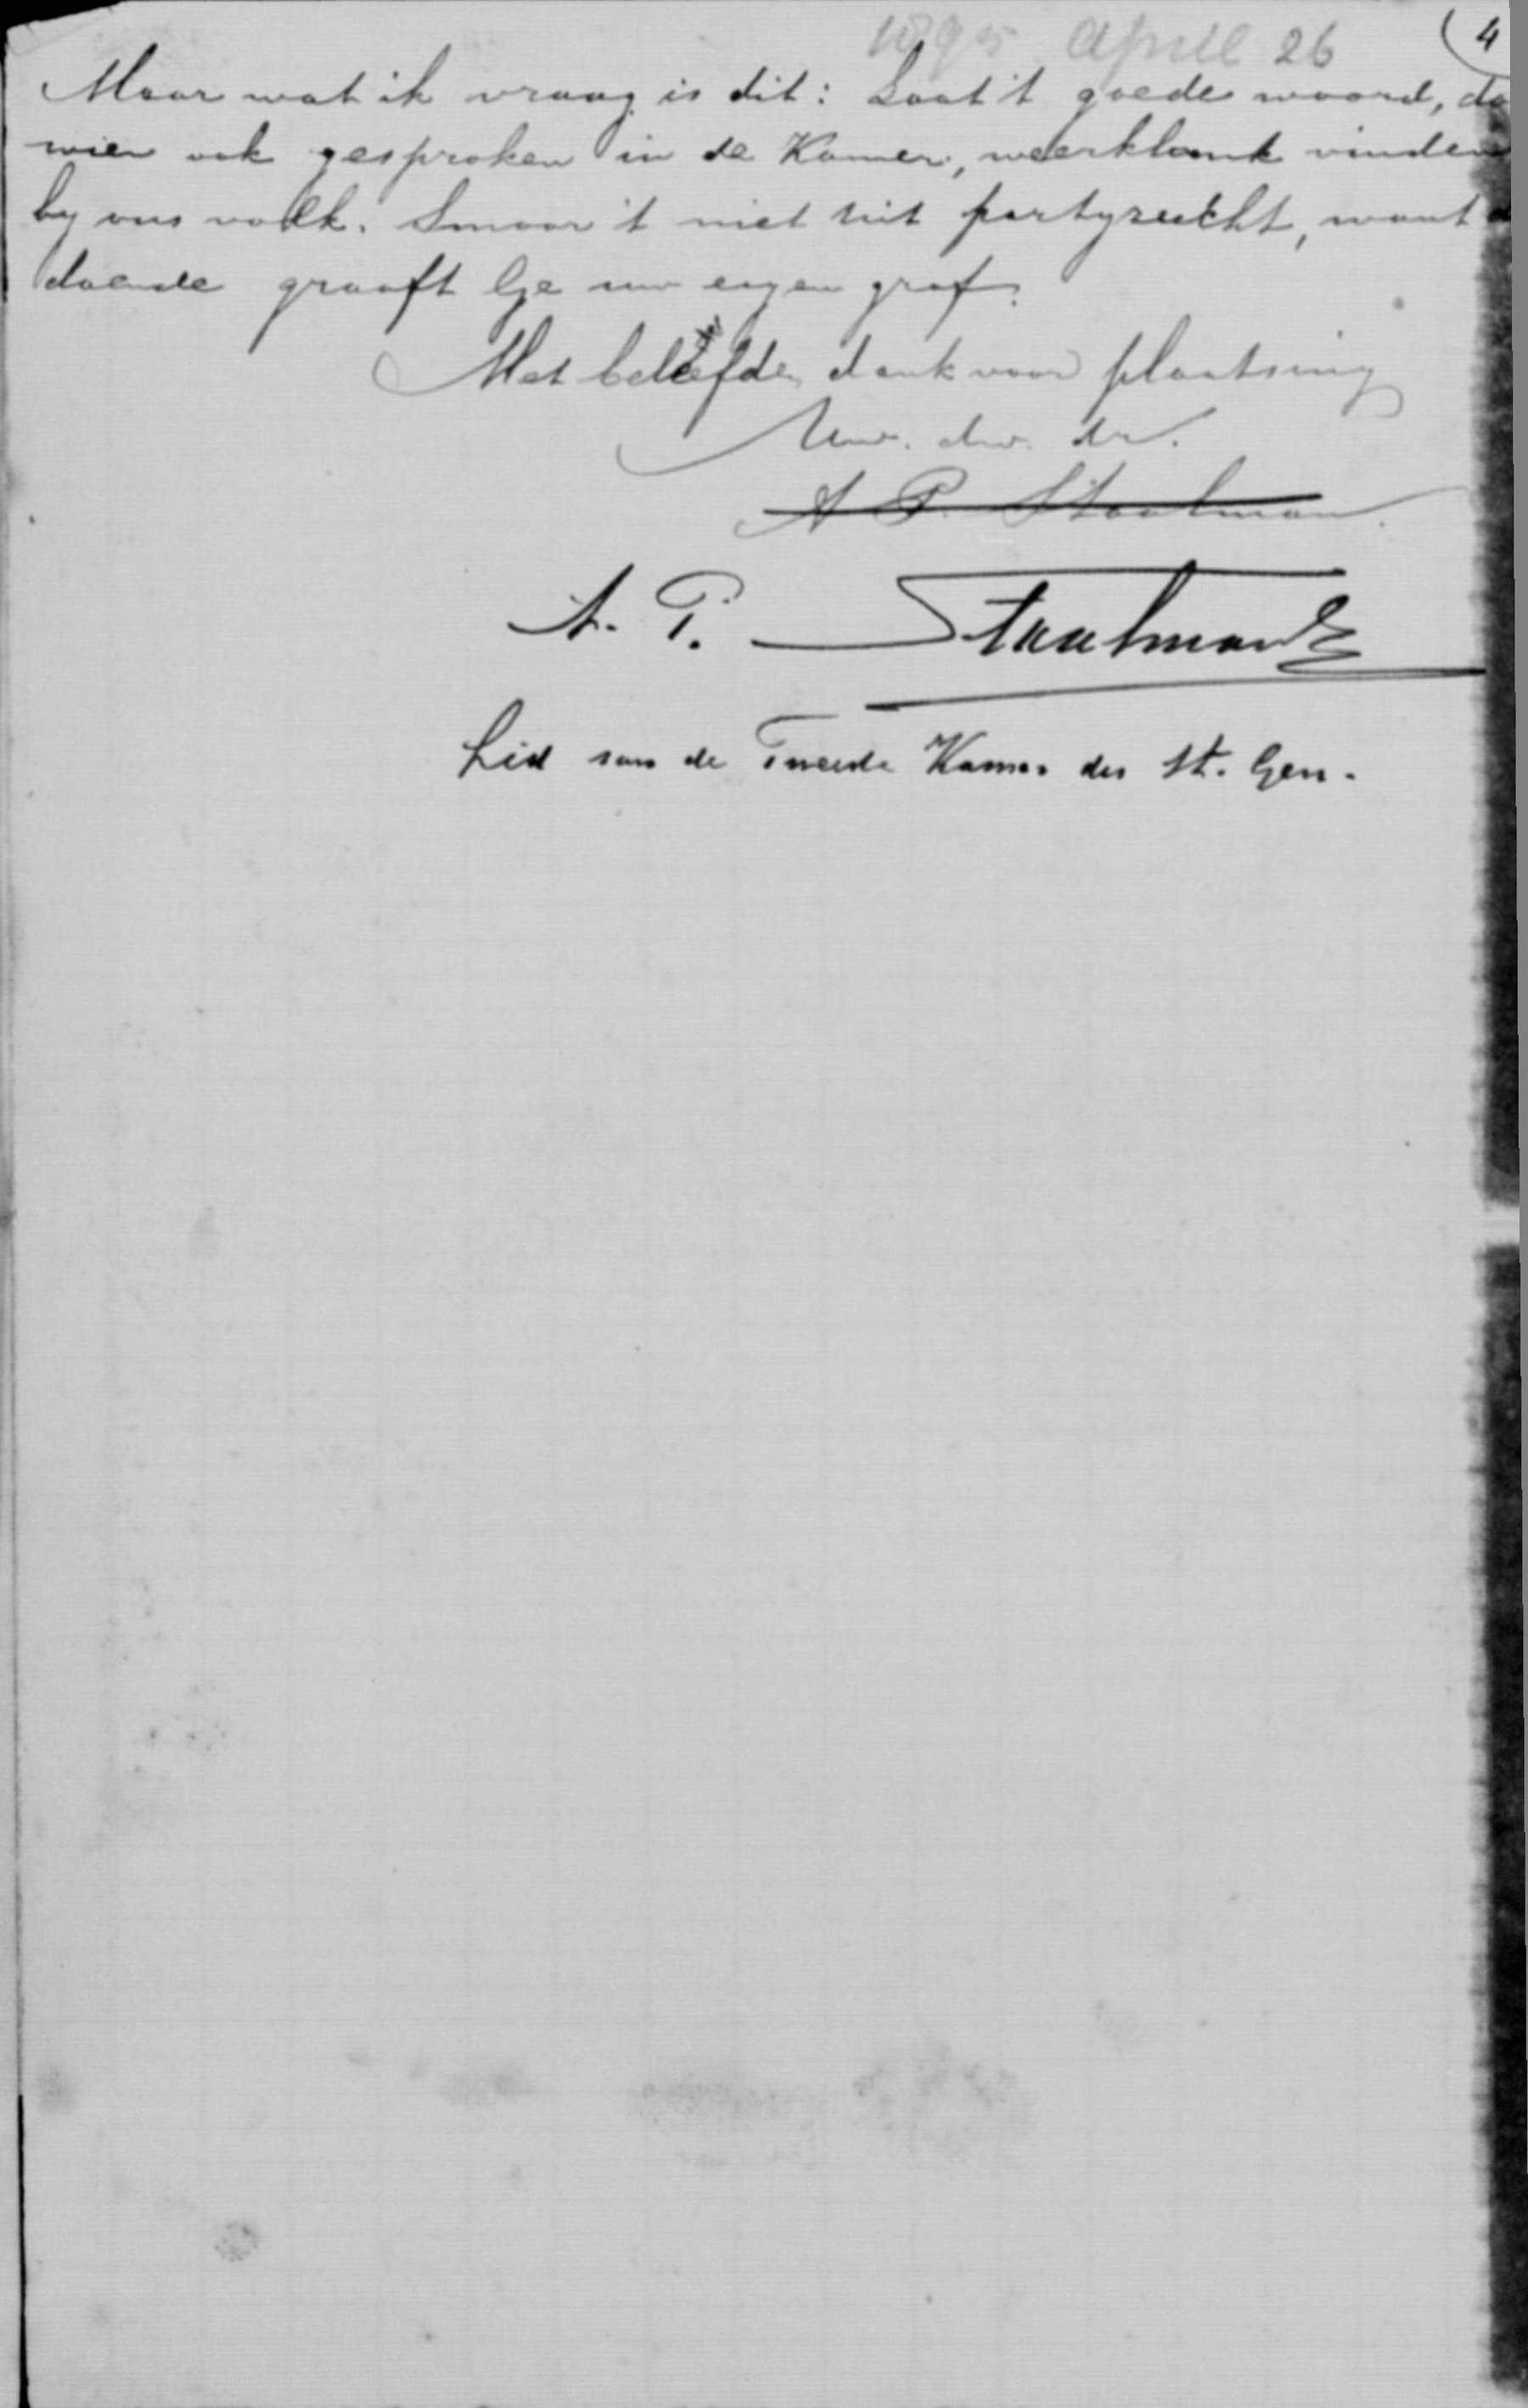 1895 April 26 (4
Maar wat ik vraag is dit: Laat 't goede woord, do
wien ook gesproken in de Kamer, weerklank vinden
by ons volk. Smoor 't niet uit partyzucht, want
doende graaft Ge uw eigen graf.
Met beleefde dank voor plaatsing
Uw. dw. dr.
A P. Staalman.
A. P. Staalman
Lid van de Tweede Kamer der St. Gen.